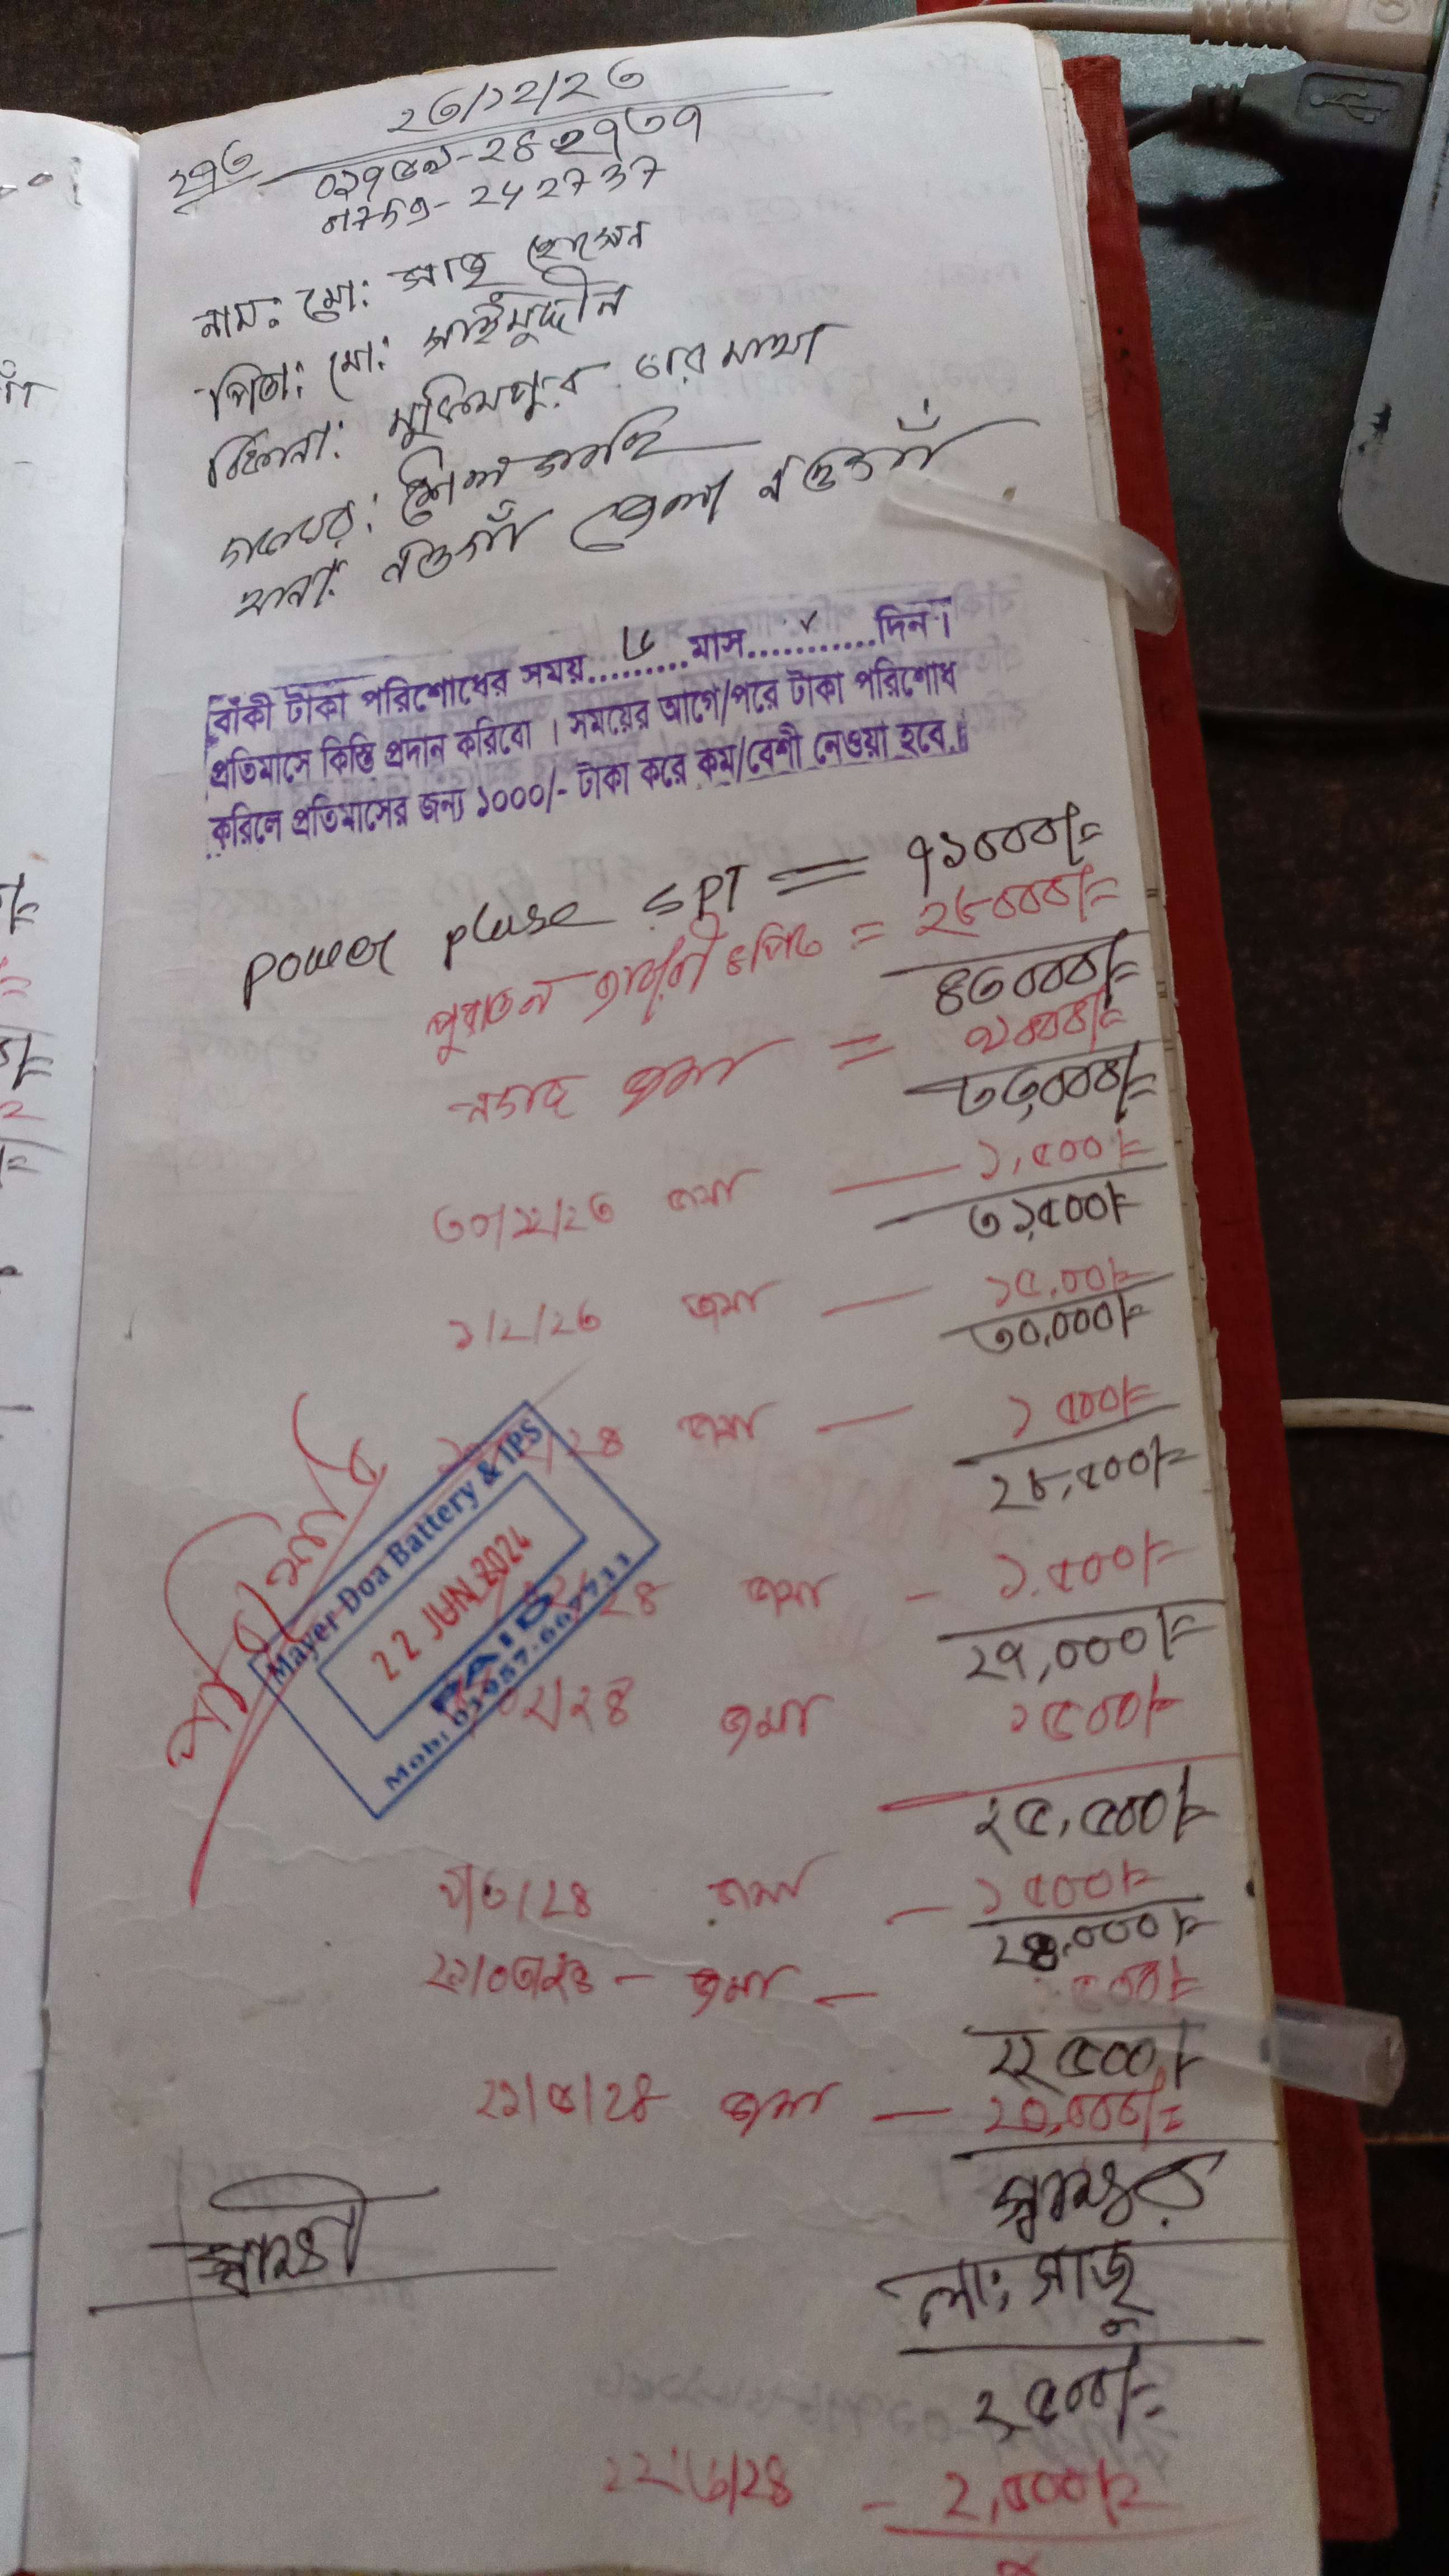 ২৩/১২/২৩
২৭৩
০১৭৫৯-২৪২৭৩৭
01759-242737
নাম: মো: সাজু হোসেন
পিতা: মো: সাইমুদ্দীন
ঠিকানা: মুকিমপুর চার মাথা
ডাকঘর:
থানা: নওগাঁ জেলা নওগাঁ
বাঁকী টাকা পরিশোধের সময়.....৬....মাস...........দিন।
প্রতিমাসে কিস্তি প্রদান করিবো । সময়ের আগে/পরে টাকা পরিশোধ
করিলে প্রতিমাসের জন্য ১০০০/- টাকা করে কম/বেশী নেওয়া হবে।
power pluse 5PT = ৭১০০০/=
পুরাতন ব্যাটারী ৪পিচ = ২৮০০০/=
৪৩০০০/=
নগদ জমা = ১০০০০/=
৩৩,০০০/=
৩০/১২/২৩ জমা — ১,৫০০/=
৩১,৫০০/=
জমা — ১৫,০০/=
৩০,০০০/=
/২৪ জমা — ১৫০০/=
২৮,৫০০/=
/২৪ জমা - ১,৫০০/=
২৭,০০০/=
০২/২৪ জমা ১৫০০/=
২৫,৫০০/=
৭/৩/২৪ জমা - ১৫০০/=
২৪,০০০/=
২১/০৩/২৪ - জমা - ১৫০০/=
২২৫০০/=
জমা — ২০,০০০/=
পরিশোধ
Mayer Doa Battery & IPS
22 JUN 2024
PAID
Mob:
স্বাক্ষর
লা: সাজু
২৫০০/=
২২/৬/২৪ - ২,৫০০/=
x